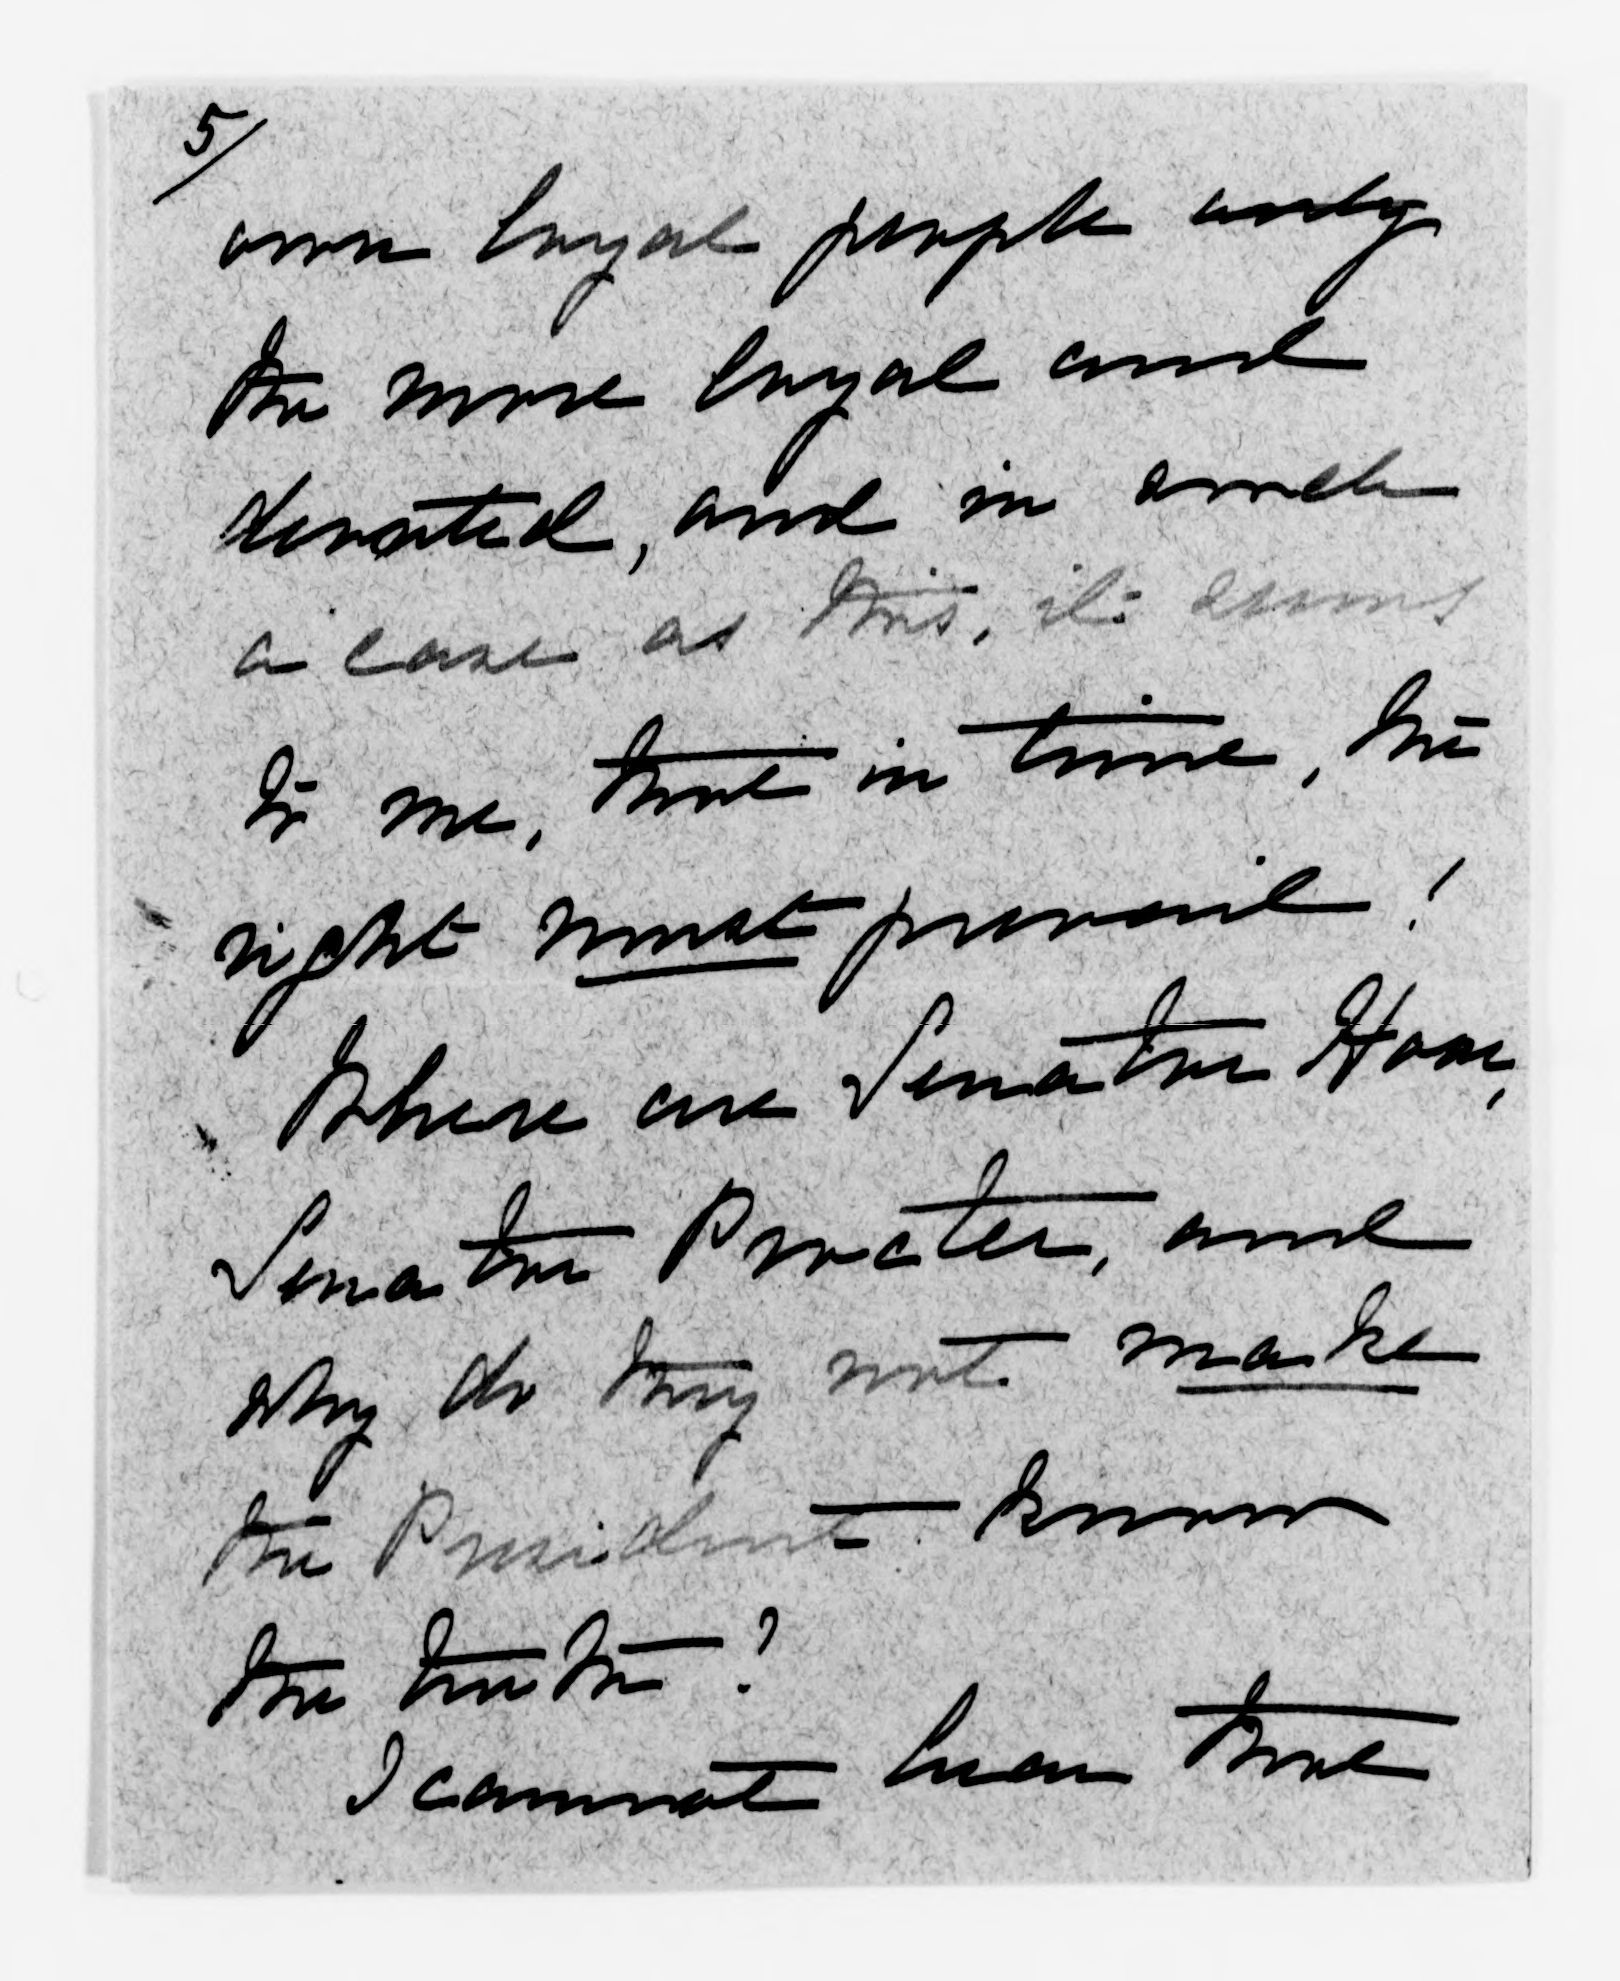 5/
own loyal people only
the more loyal and
devoted, and in such
a case as this, it seems
to me, that in time, the
right must prevail!
Where are Senator Hoar,
Senator Procter, and
why do they not make
the President know
the truth?
I cannot hear that